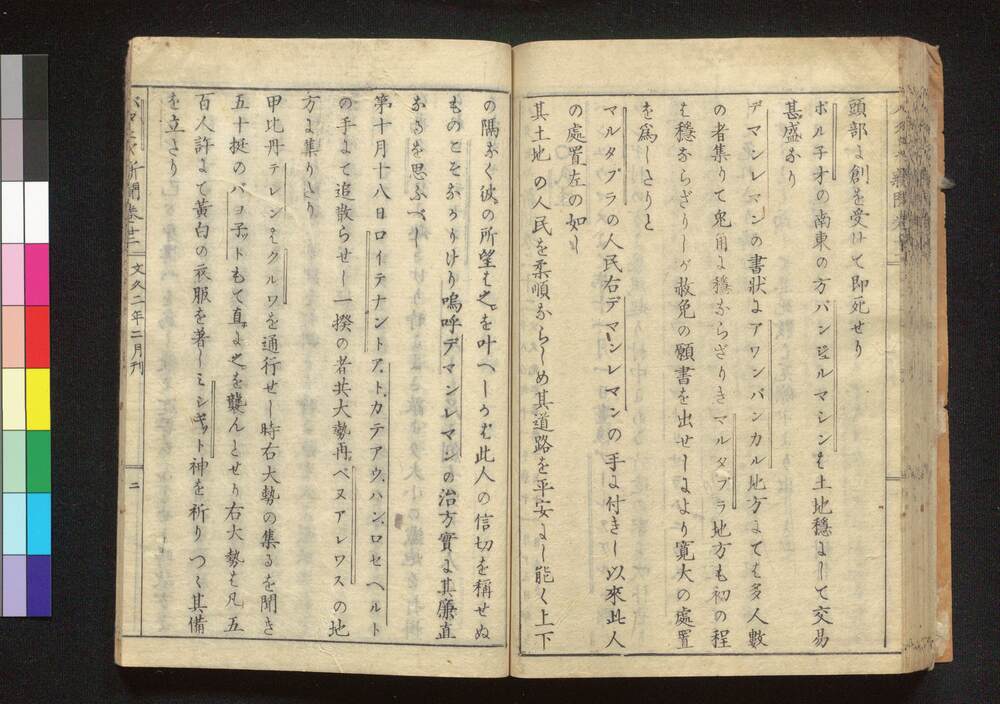 頭部ゟ創を受けて即死せり
ボル子オの南東の方バンヱルマシンは土地穏よして交易
甚盛なり
デマンレマンの書状よアワンバンカル地方よても多人數
の者集りて兎角よ穏ならざりきマルタプラ地方も初の程
は穏ならざりしが赦免の願書を出せしより寛大の處置
を為しさりと
マルタプラの人民右デマンレマンの手よ付きし以來此人
の處置左の如し
其土地の人民を柔順ならしめ其道路を平安よし能く上下
の隔なく彼の所望は之を叶へしかば此人の信切を稱せぬ
ものこそなかりけり嗚呼デマンレマンの治方實よ其廉直
なるを思ふべし
第十月十八日ロイテナントア、ト、カテアウ、ハン、ロセヘルト
の手よて追散らせし一揆の者共大勢再、ベヌアレワスの地
方よ集りさり
甲比丹テレンはクルワを通行せし時右大勢の集るを聞き
五十挺のバヨ子ットもて直よ之を襲んとせり右大勢は凡五
百人許よて黄白の衣服を著しミシギット神を祈りつゝ其備
を立さり
新聞巻十二 文久二年二月刊 二